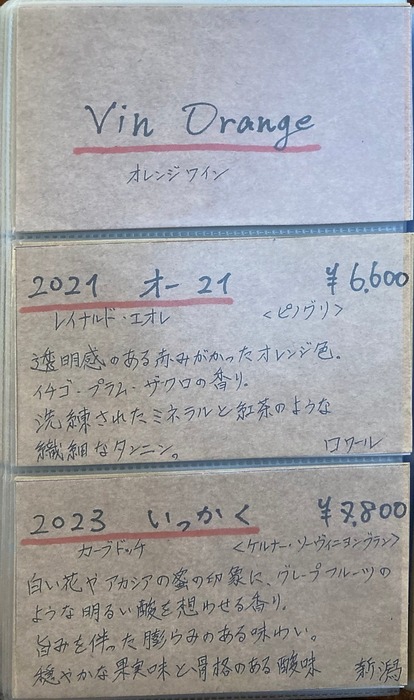 Vin Orange
オレンジワイン
2021 オー 21 ¥6,600
レイナルド・エオレ <ピノグリ>
透明感のある赤みがかったオレンジ色。
イチゴ・プラム・ザクロの香り。
洗練されたミネラルと紅茶のような
繊細なタンニン。 ロワール
2023 いっかく ¥7,800
カーブドッチ <ケルナー・ソーヴィニヨンブラン>
白い花やアカシアの蜜の印象に、グレープフルーツの
ような明るい酸を想わせる香り。
旨みを伴った膨らみのある味わい。
穏やかな果実味と骨格のある酸味 新潟